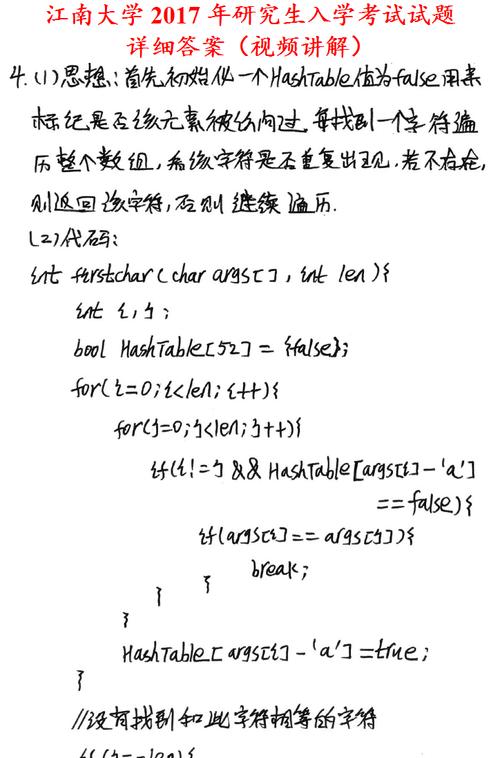 江南大学 2017 年研究生入学考试试题
详细答案（视频讲解）
4.(1)思想:首先初始化一个HashTable值为false用来
标记是否该元素被访问过.每找到一个字符遍
历整个数组,看该字符是否重复出现.若不存在,
则返回该字符,否则继续遍历.
(2)代码:
int firstchar(char args[], int len){
int i,j;
bool HashTable[52] = {false};
for(i=0;i<len;i++){
for(j=0;j<len;j++){
if(i!=j && HashTable[args[i]-'a']
==false){
if(args[i]==args[j]){
break;
} }
}
HashTable[args[i]-'a']=true;
}
//没有找到和此字符相等的字符
if(j==len){